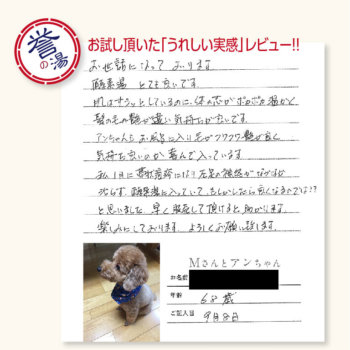 誉の湯
お試し頂いた「うれしい実感」レビュー!!
お世話になっております
酵素湯 とても良いです
肌はサラッとしているのに、体の芯がポカポカ温かく
髪の毛の艶が違い気持ちが良いです
アンちゃんもお風呂に入り毛がフワフワ艶が良く
気持ち良いのか喜んで入っています
私、1月に帯状疱疹になり左足の後遺がなかなか
治らず酵素湯に入っていて、もしかしたら良くなるのでは??
と思いました 早く販売して頂けると助かります。
楽しみにしております。よろしくお願い致します。
MさんとアンちゃんN
お名前
年齢 68歳
ご記入日 9月8日